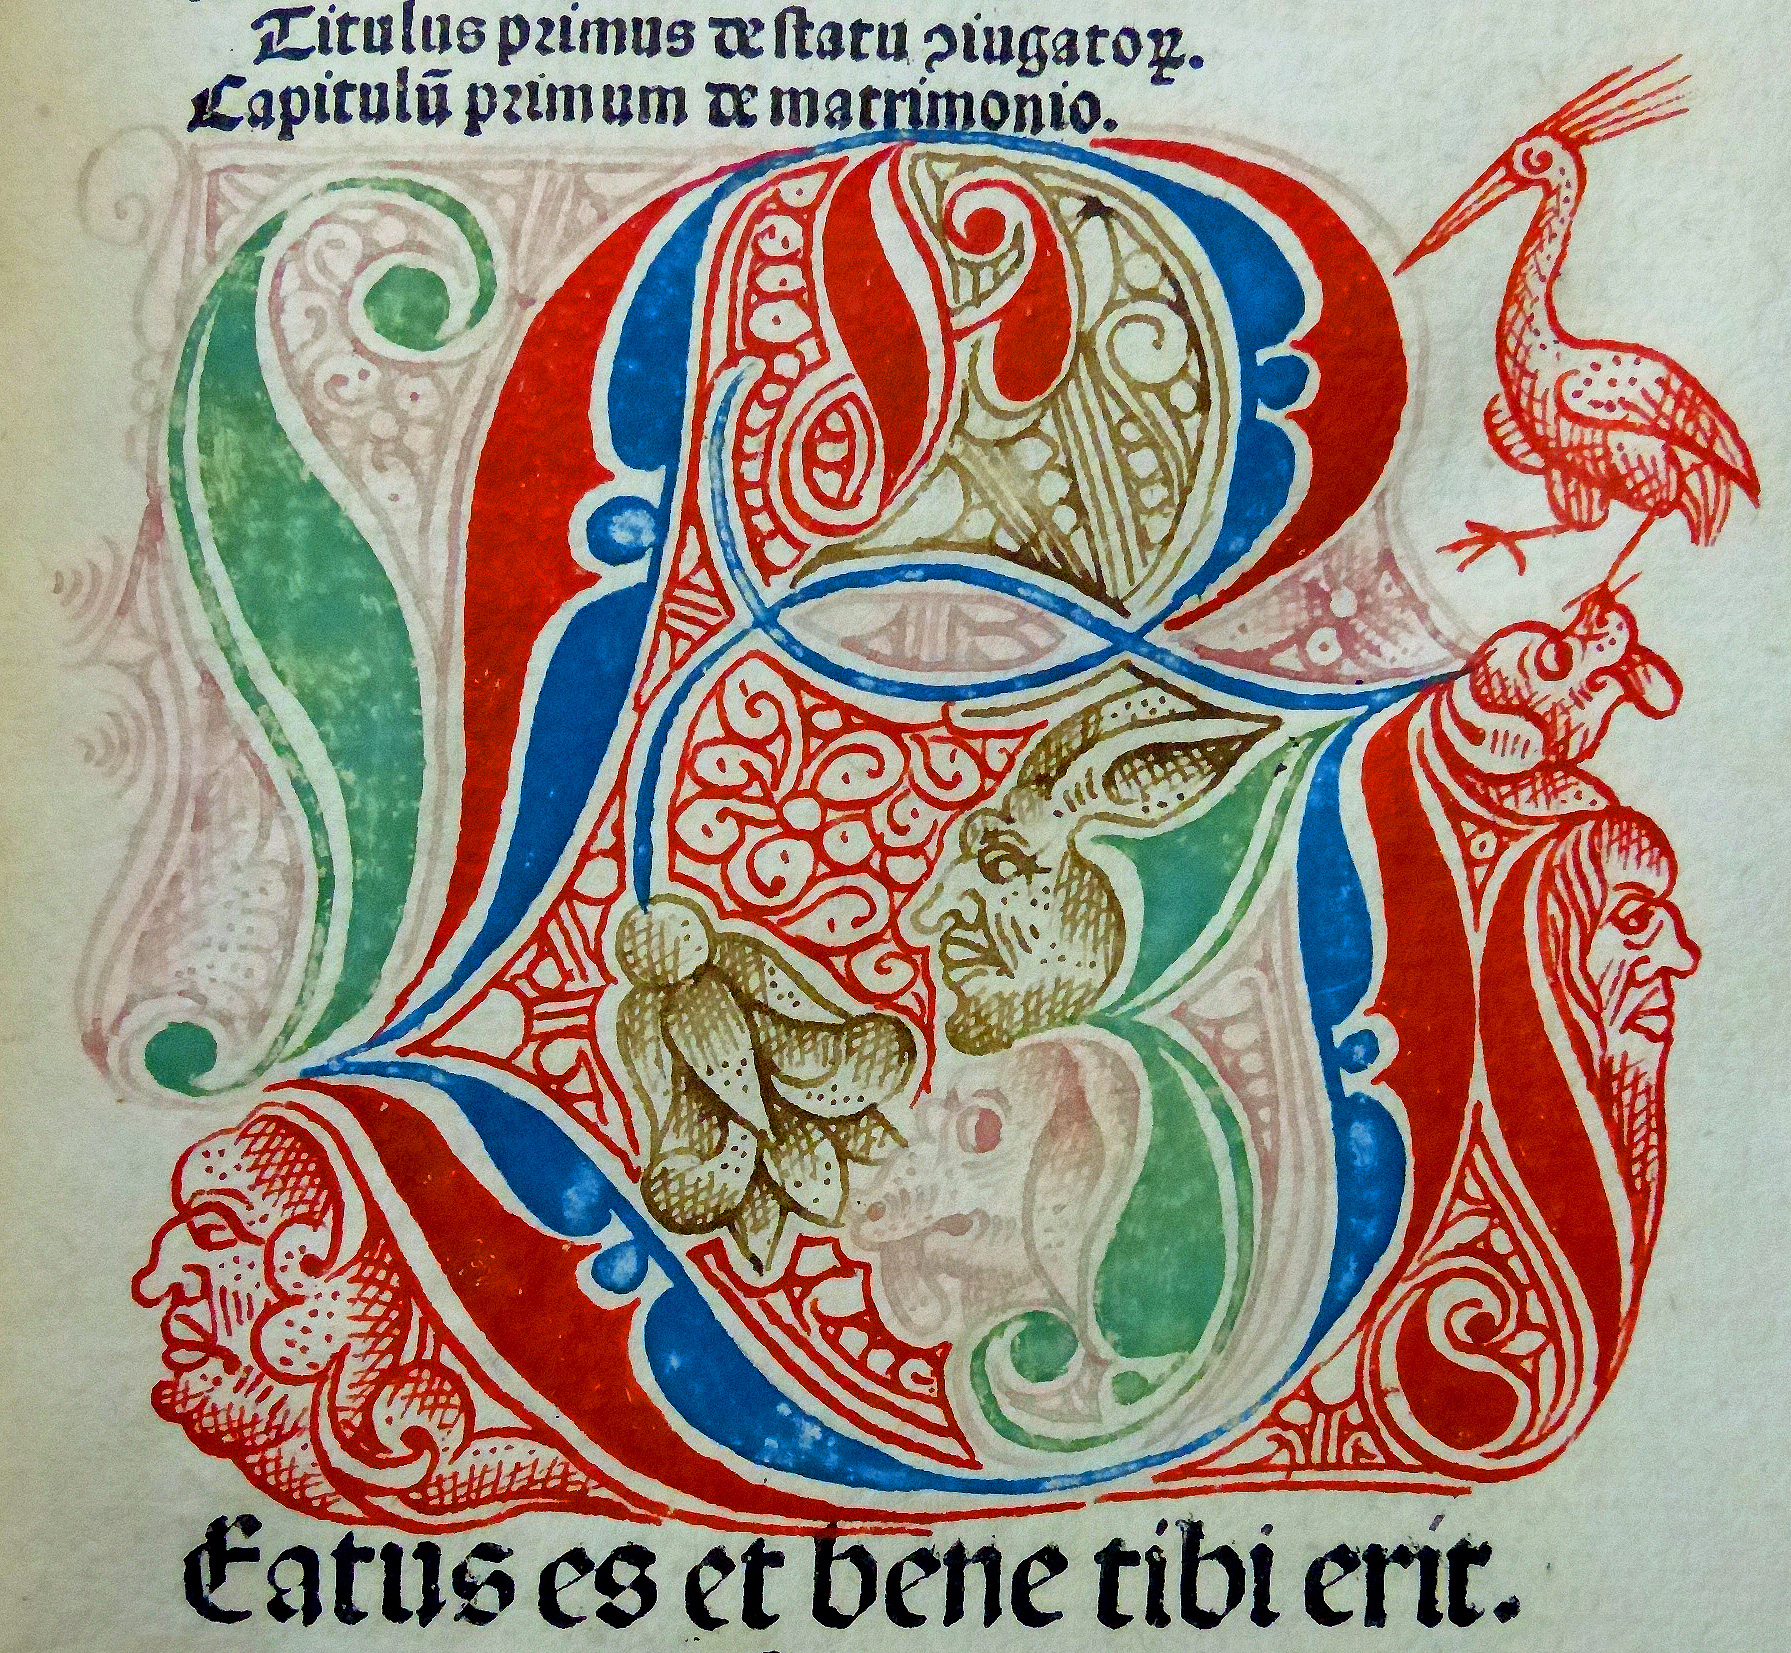 Titulus primus de statu ↄiugatoꝝ.
Capitulū primum de matrimonio.
B
Eatus es et bene tibi erit.